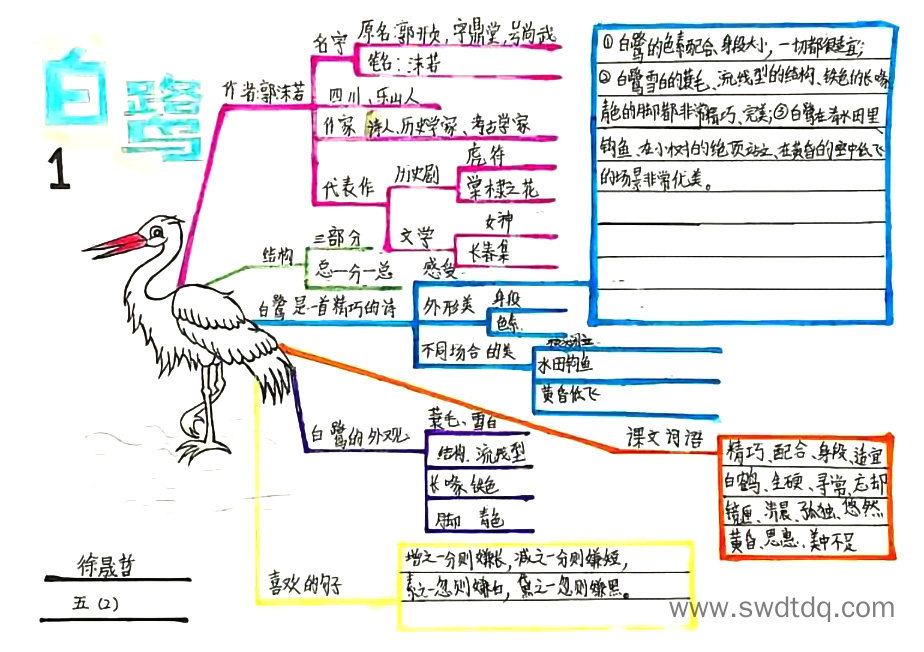 白鹭
1
作者:郭沫若
名字
原名:郭开贞,字鼎堂,号尚武
笔名:沫若
四川、乐山人
作家 诗人、历史学家、考古学家
代表作
历史剧
虎符
棠棣之花
文学
女神
长春集
结构
三部分
总一分一总
白鹭是一首精巧的诗
感受
外形美
身段
色素
不同场合的美
水田钓鱼
黄昏低飞
①白鹭的色素配合、身段大小,一切都很适宜;
②白鹭雪白的蓑毛、流线型的结构、铁色的长喙
青色的脚都非常精巧、完美;③白鹭在清水田里
钓鱼、在小树的绝顶站立、在黄昏的空中低飞
的场景非常优美。
白鹭的外观
蓑毛、雪白
结构、流线型
长喙、铁色
脚 青色
课文词语
精巧、配合、身段、适宜
白鹤、生硬、寻常、忘却
镜匣、清晨、孤独、悠然
黄昏、恩惠、美中不足
喜欢的句子
增之一分则嫌长,减之一分则嫌短,
素之一忽则嫌白,黛之一忽则嫌黑。
徐晟哲
五(2)
www.swdtdq.com